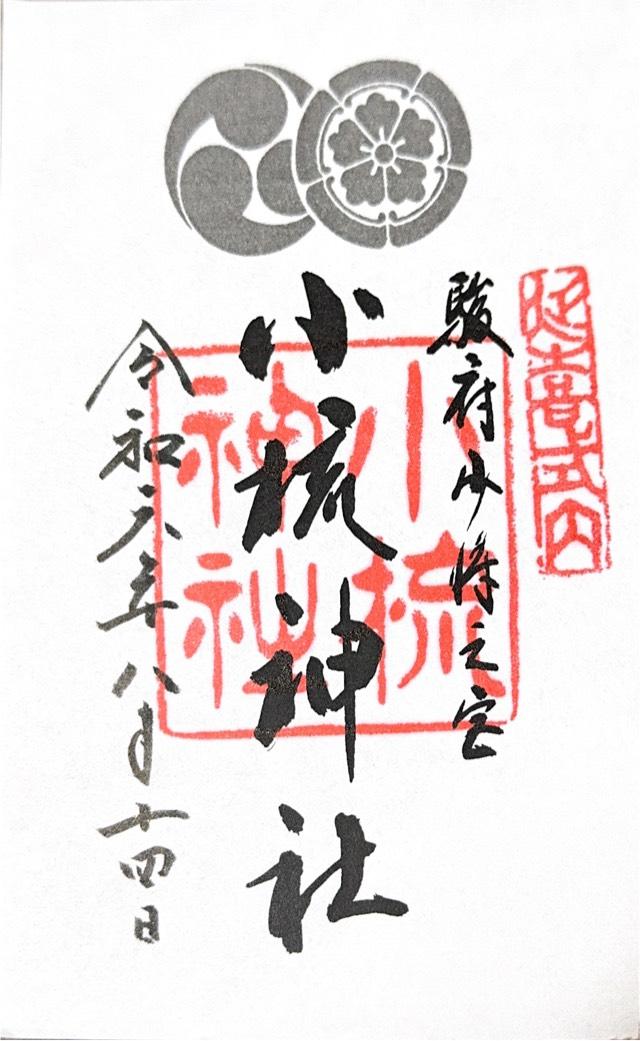 延喜式内
駿府少将之宮
小梳神社
小梳神社
令和六年八月十四日